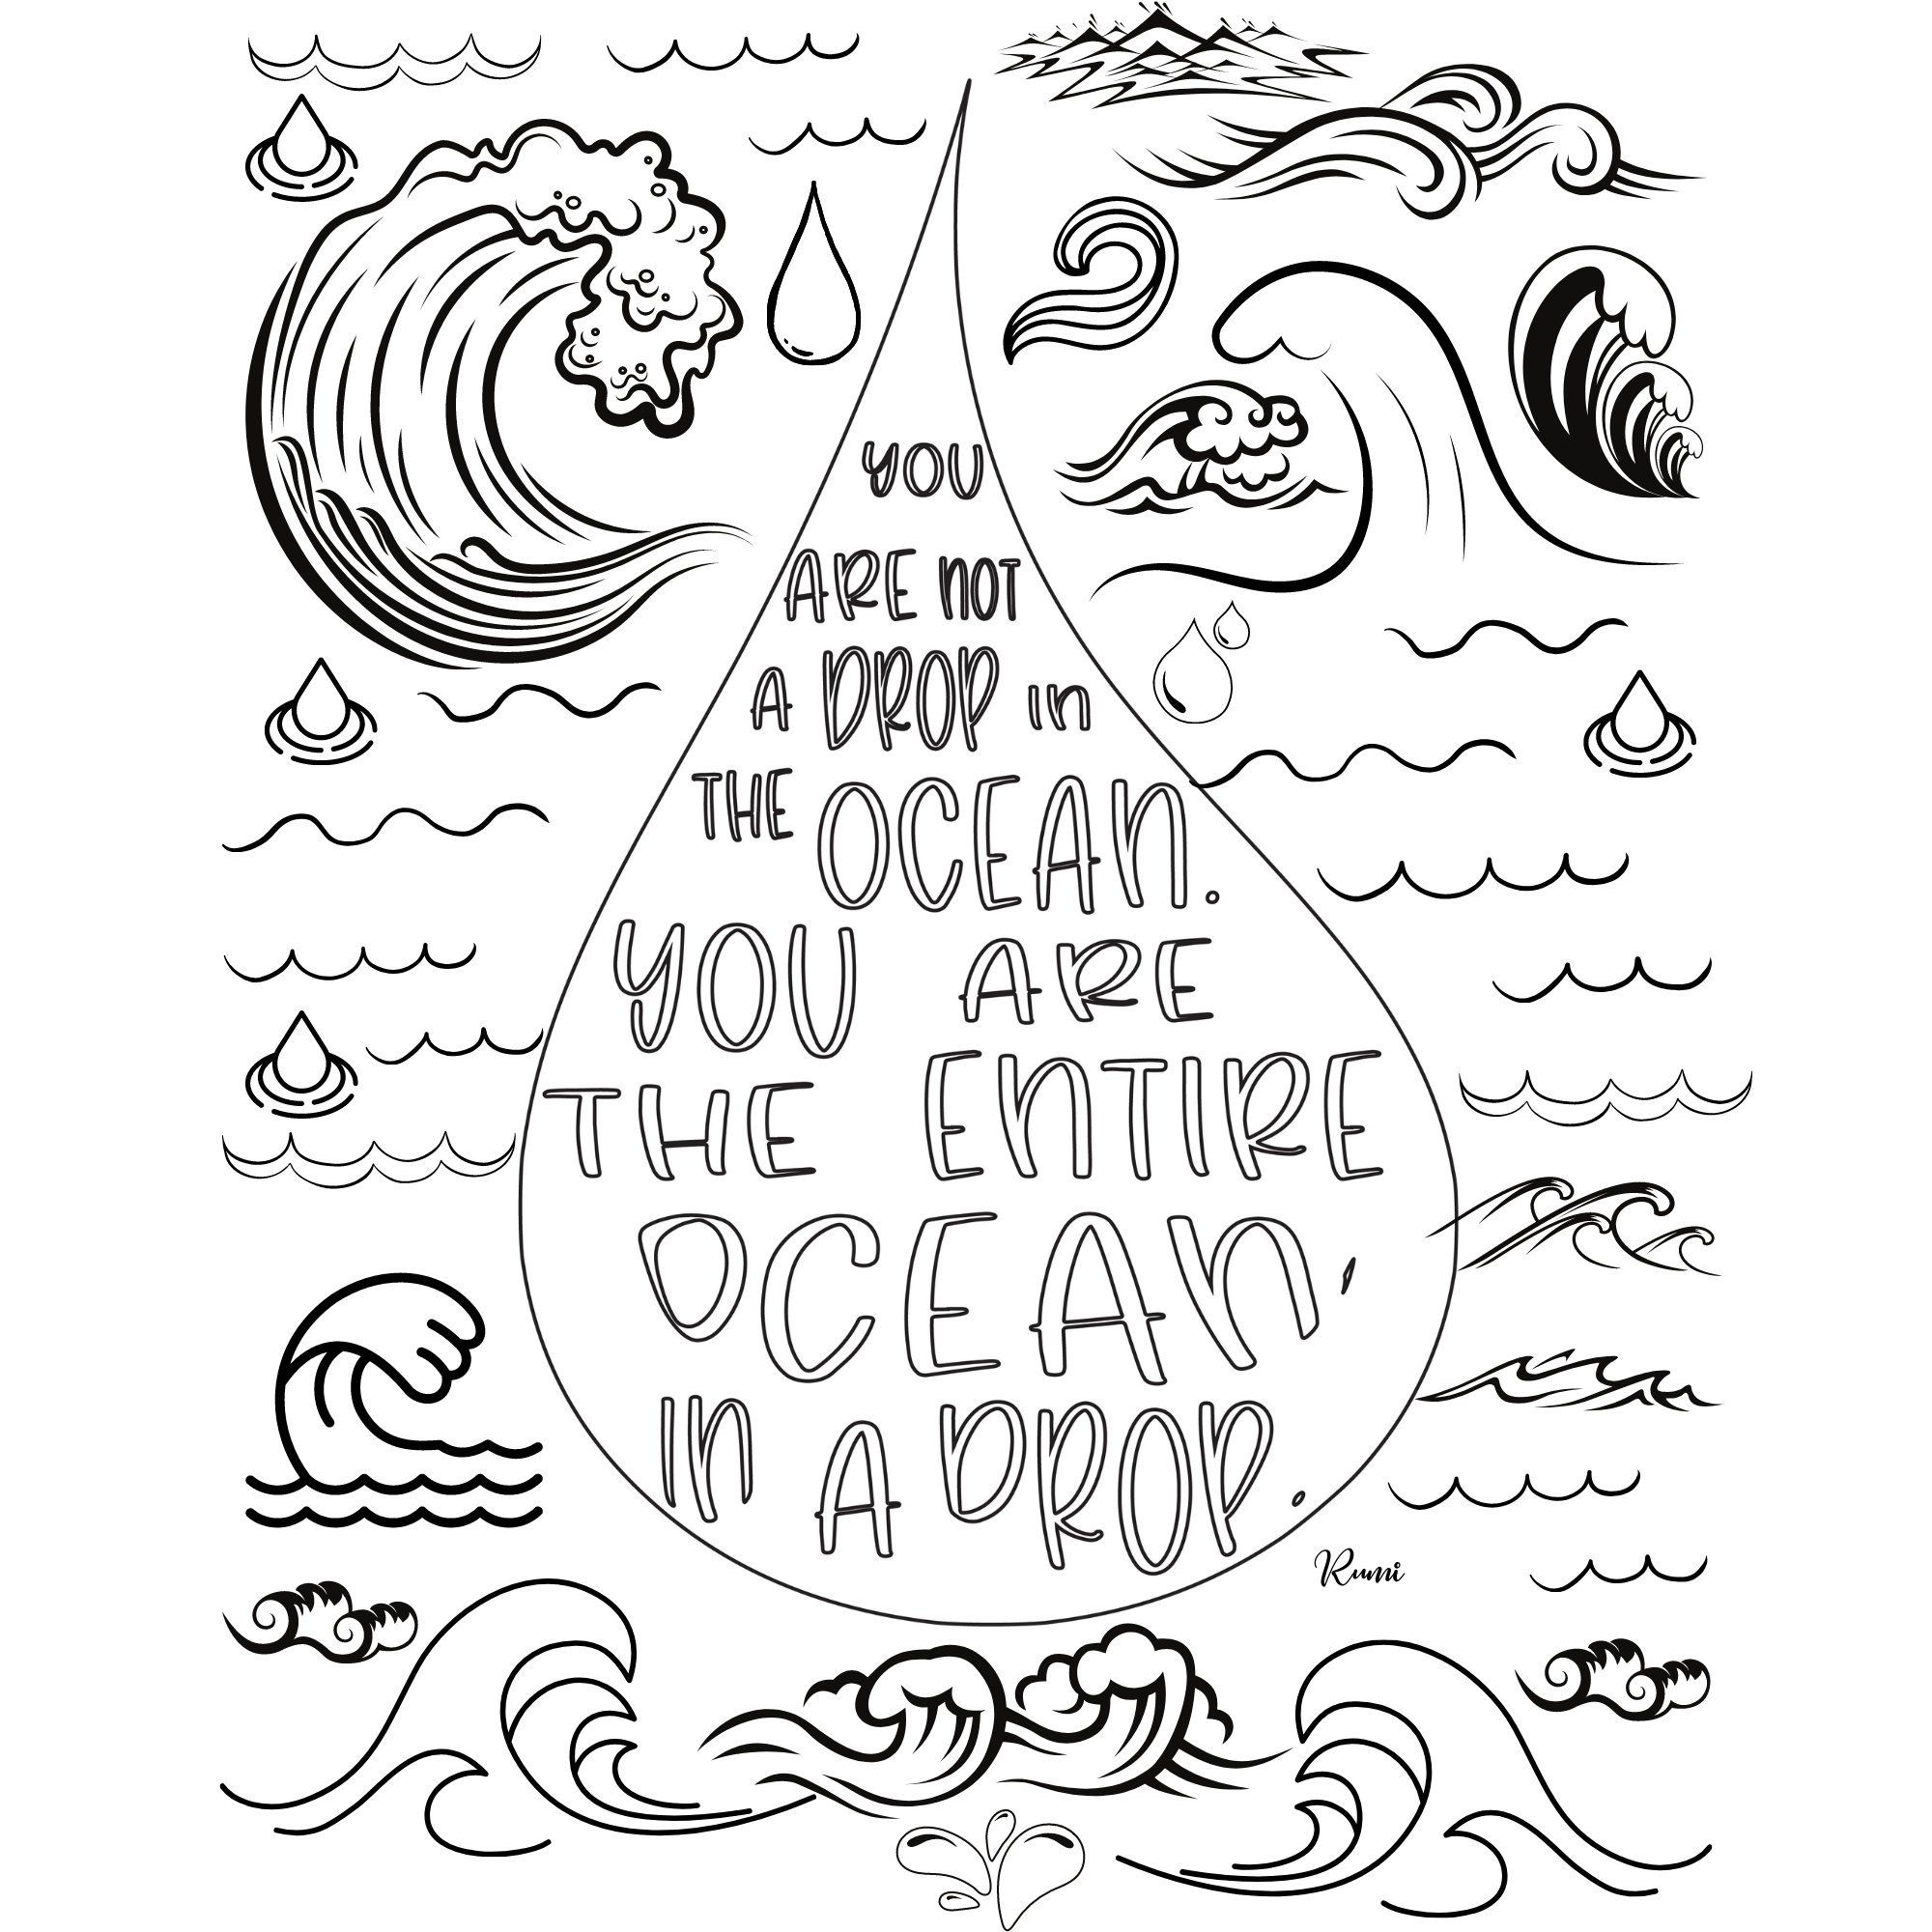 YOU
ARE NOT
A DROP in
THE OCEAN.
YOU ARE
THE ENTIRE
OCEAN,
IN A DROP.
Rumi